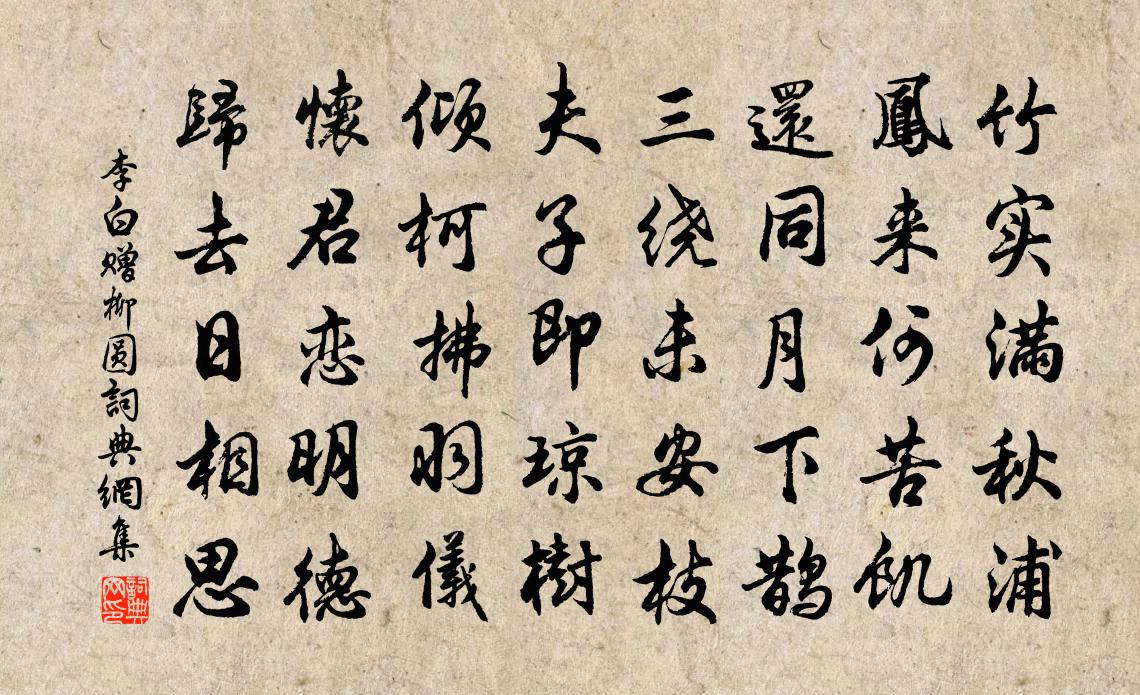 竹实满秋浦
鳳来何苦飢
還同月下鹊
三绕未安枝
夫子即琼樹
傾柯拂羽儀
懷君恋明德
歸去日相思
李白赠柳圆詞典網集
詞典网印